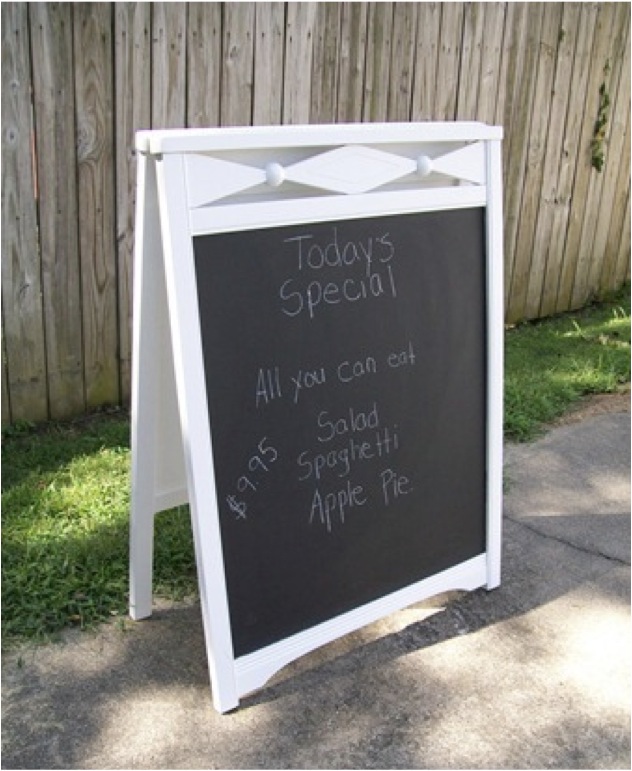 Today's
Special
All you can eat
Salad
Spaghetti
Apple Pie
$9.95